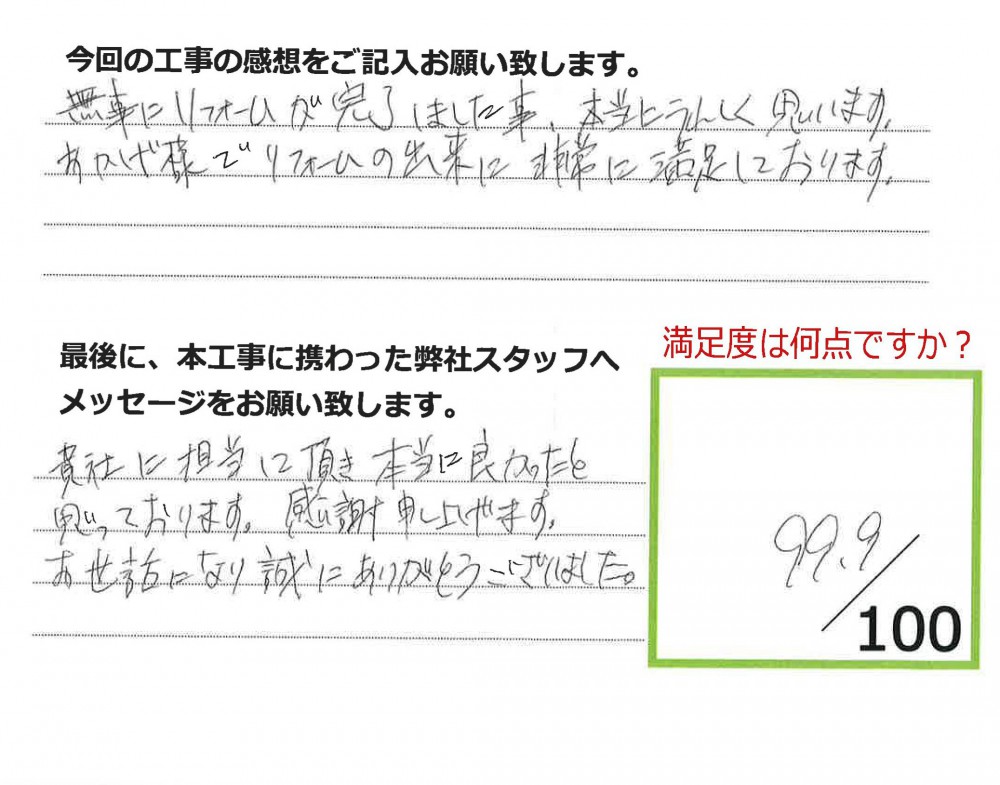 今回の工事の感想をご記入お願い致します。
無事にリフォームが完了しました事、本当にうれしく思います。
おかげ様でリフォームの出来に非常に満足しております。
最後に、本工事に携わった弊社スタッフへ
メッセージをお願い致します。
貴社に担当に頂き本当に良かったと
思っております。感謝申し上げます。
お世話になり誠にありがとうございました。
満足度は何点ですか？
99.9/100